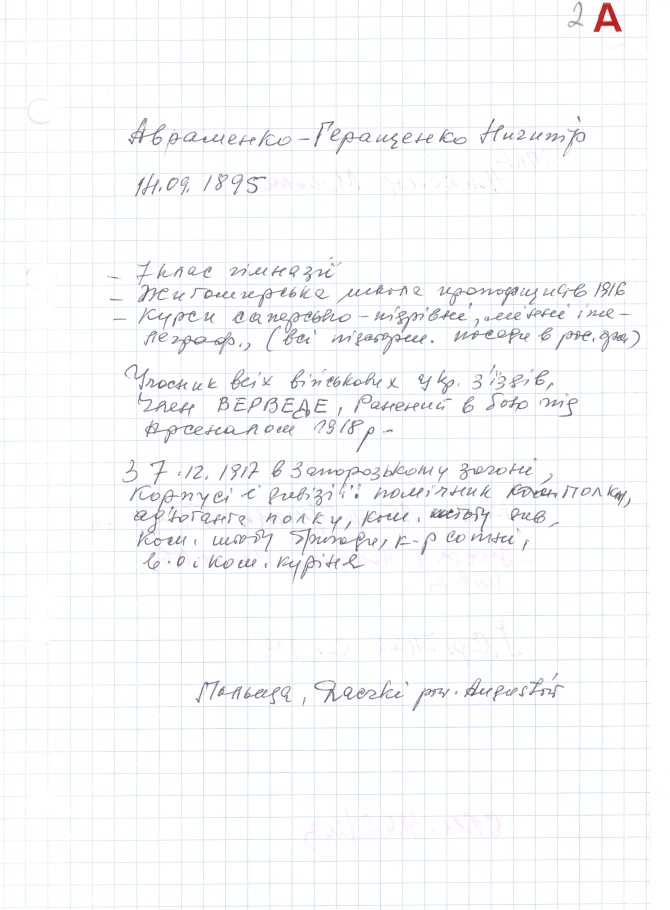 2 А
Авраменко-Геращенко Ничипір
14.09.1895
– 7 клас гімназії
– Житомирська школа прапорщиків 1916
– Курси саперсько-підривні, мінні і те-
леграф., (всі в рос. армії)
Учасник всіх військових укр. з'їздів,
Член ВЕРВЕДЕ, Ранений в бою під
Арсеналом 1918 р –
З 7.12.1917 в Запорозькому загоні,
Корпусі і дивізії: помічник ком полку,
ад'ютанта полку, ком. штабу див,
ком. штабу бригади, к-р сотні,
в.о. ком. куріня
Польща, Raczki pow. Augustów